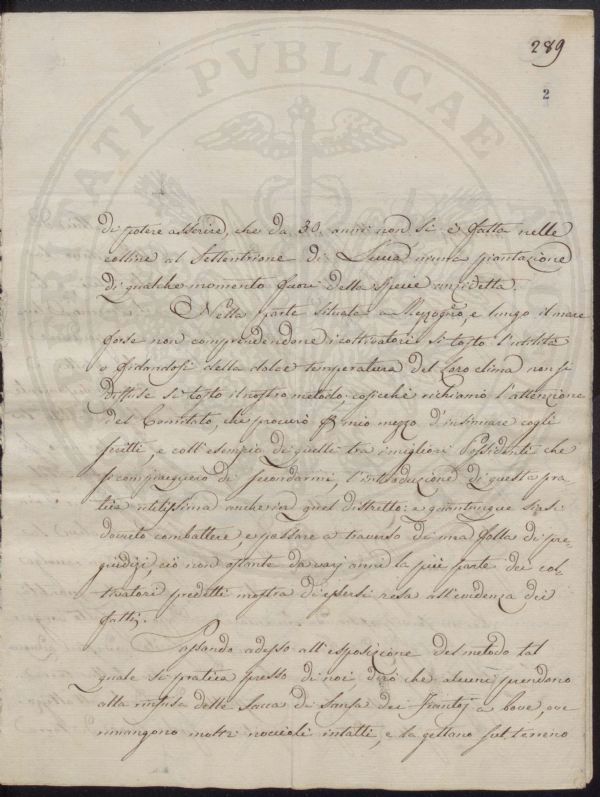 289
2
TATI PVBLICAE
di potere asserire, che da 30 anni non si è fatta nelle
colline al Settentrione di Lucca niuna piantazione
di qualche momento fuori della specie anzidetta.
Nella parte situata a Mezzogno, e lungo il mare
forse non comprendendone i coltivatori sì tosto l'utilità
o fidandosi della dolce temperatura del loro clima non si
diffuse sì tosto il nostro metodo: cosicchè richiamò l'attenzione
del Comitato, che procurò p mio mezzo d'insinuare cogli
scritti, e coll'esempio di quelli tra i migliori Possidenti che
si compiacquero di secondarmi, l'introduzione di questa pra
tica utilissima anche in quel distretto: e quantunque siasi
dovuto combattere, e passare a traverso di una folla di pre-
giudizj, ciò non ostante da varj anni la più parte dei col-
tivatori predetti mostra di essersi resa all'evidenza dei
fatti.
Passando adesso all'esposizione del metodo tal
quale si pratica presso di noi dirò che alcuni prendono
alla rinfusa delle Sacca di Sansa dei Frantoj a bove, ove
rimangono molti noccioli intatti, e la gettano sul terreno